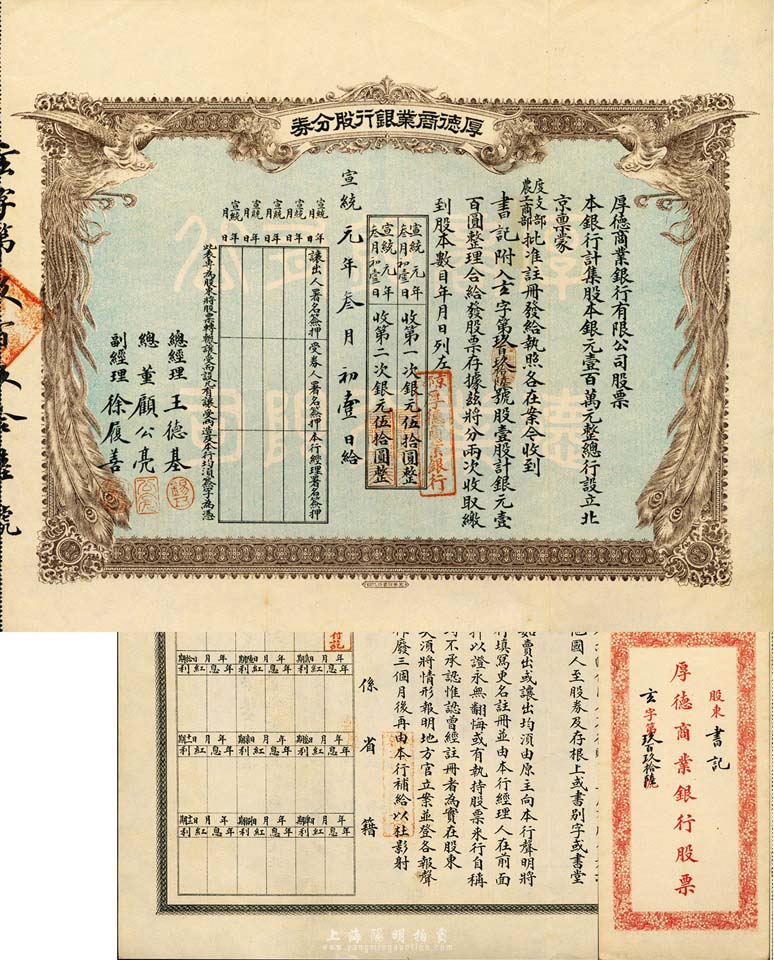 厚德商業銀行股分券
厚德商業銀行有限公司股票
本銀行計集股本銀元壹百萬元整總行設立北
京稟蒙
度支部
農工商部
批准註冊發給執照各在案今收到
書記附入玄字第玖百玖拾陸號股壹股計銀元壹
百圓整理合給發股票存據茲將分兩次收取繳
到股本數目年月日列左
宣統元年叁月初壹日收第一次銀元伍拾圓整
宣統元年叁月初壹日收第二次銀元伍拾圓整
京師厚德商業銀行
宣統元年叁月初壹日給
讓出人署名簽押 受券人署名簽押 本行經理署名簽押
宣統 年 月 日
宣統 年 月 日
宣統 年 月 日
宣統 年 月 日
宣統 年 月 日
此表專為股東將股票轉輾讓受而設凡有讓受而遵章本行均須簽字為憑
總經理 王德基
總董 顧公亮
副經理 徐履善
玄字第玖百玖拾陸號
他國人至股券及存根上或書別字或書堂
如賣出或讓出均須由原主向本行聲明將
行填寫更名註冊並由本行經理人在前面
押以證永無翻悔或有執持股票來行自稱
均不承認惟認曾經註冊者為實在股東
失須將情形報明地方官立案並登各報聲
作廢三個月後再由本行補給以杜影射
係 省 籍
年 月 日
年息紅利
年 月 日
年息紅利
年 月 日
年息紅利
厚德商業銀行股票
股東 書記
玄字第玖百玖拾陸號
上海陽明拍賣
www.yangmingauction.com